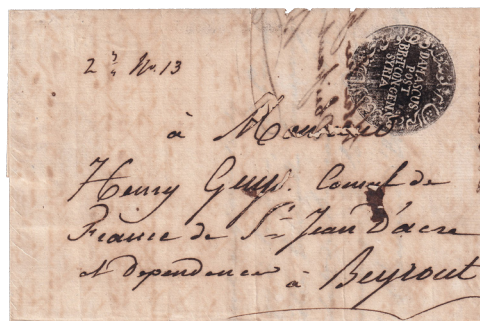 2 No. 13
DAMASCUS
POST
BRIT. CON. GEN.
SYRIA
à Monsieur
Henry Guys. Consul de
France de St Jean D'acre
et dependences
à Beyrout